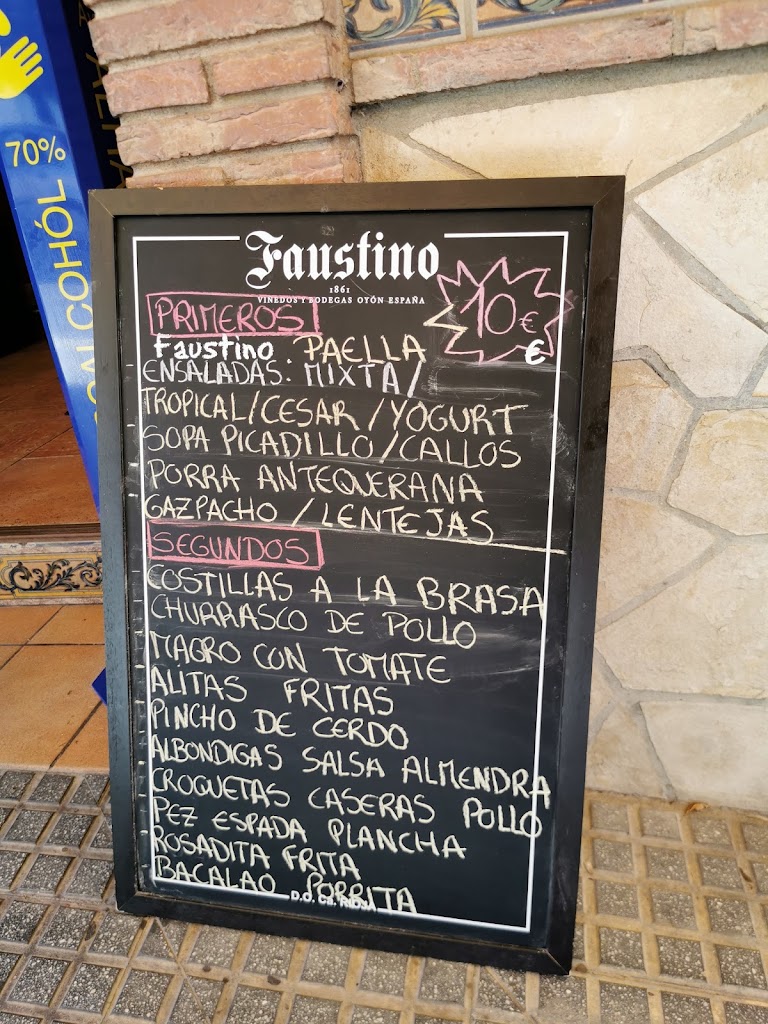 70%
ALCOHÓL
Faustino
1861
VIÑEDOS Y BODEGAS OYÓN ESPAÑA
10€
€
PRIMEROS
Faustino PAELLA
ENSALADAS: MIXTA/
TROPICAL/CESAR/YOGURT
SOPA PICADILLO/CALLOS
PORRA ANTEQUERANA
GAZPACHO/LENTEJAS
SEGUNDOS
COSTILLAS A LA BRASA
CHURRASCO DE POLLO
MAGRO CON TOMATE
ALITAS FRITAS
PINCHO DE CERDO
ALBONDIGAS SALSA ALMENDRA
CROQUETAS CASERAS POLLO
PEZ ESPADA PLANCHA
ROSADITA FRITA
BACALAO PORRITA
D.O. Ca. RIOJA